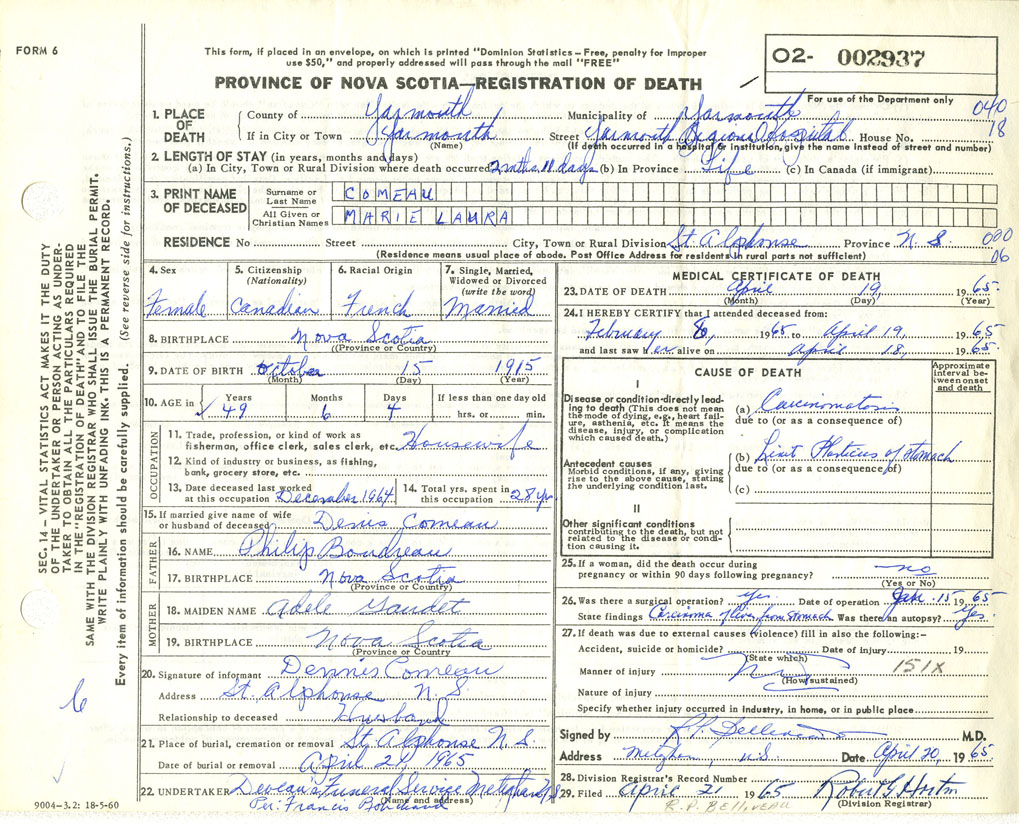 FORM 6
This form, if placed in an envelope, on which is printed "Dominion Statistics – Free, penalty for improper
use $50," and properly addressed will pass through the mail "FREE"
O2- 002937
PROVINCE OF NOVA SCOTIA—REGISTRATION OF DEATH
For use of the Department only
040
18
1. PLACE OF DEATH
County of Yarmouth Municipality of Yarmouth
If in City or Town Yarmouth Street Yarmouth Regional Hospital House No.
(Name) (If death occurred in a hospital or institution, give the name instead of street and number)
2. LENGTH OF STAY (in years, months and days)
(a) In City, Town or Rural Division where death occurred 2 mths. 11 days (b) In Province Life (c) In Canada (if immigrant)
3. PRINT NAME OF DECEASED
Surname or Last Name COMEAU
All Given or Christian Names MARIE LAURA
RESIDENCE No Street City, Town or Rural Division St Alphonse Province N S
000
06
(Residence means usual place of abode. Post Office Address for residents in rural parts not sufficient)
4. Sex 5. Citizenship (Nationality) 6. Racial Origin 7. Single, Married, Widowed or Divorced (write the word)
Female Canadian French Married
8. BIRTHPLACE Nova Scotia
(Province or Country)
9. DATE OF BIRTH October 15 1915
(Month) (Day) (Year)
10. AGE in Years Months Days If less than one day old
49 6 4 hrs. or min.
OCCUPATION
11. Trade, profession, or kind of work as
fisherman, office clerk, sales clerk, etc. Housewife
12. Kind of industry or business, as fishing,
bank, grocery store, etc.
13. Date deceased last worked at this occupation December 1964 14. Total yrs. spent in this occupation 28 yr
15. If married give name of wife
or husband of deceased Denis Comeau
FATHER
16. NAME Philip Boudreau
17. BIRTHPLACE Nova Scotia
(Province or Country)
MOTHER
18. MAIDEN NAME Adele Gaudet
19. BIRTHPLACE Nova Scotia
(Province or Country
20. Signature of informant Dennis Comeau
Address St. Alphonse N S
Relationship to deceased Husband
21. Place of burial, cremation or removal St Alphonse N.S.
Date of burial or removal April 21, 1965
22. UNDERTAKER Funeral Service
(Name and address)
Per: Francis
MEDICAL CERTIFICATE OF DEATH
23. DATE OF DEATH April 19 1965
(Month) (Day) (Year)
24. I HEREBY CERTIFY that I attended deceased from:
February 8, 1965 to April 19, 1965
and last saw her alive on April 18, 1965
CAUSE OF DEATH
Approximate interval between onset and death
I
Disease or condition-directly leading to death (This does not mean the mode of dying, e.g., heart failure, asthenia, etc. It means the disease, injury, or complication which caused death.)
(a) Carcinomatosis
due to (or as a consequence of)
Antecedent causes
Morbid conditions, if any, giving rise to the above cause, stating the underlying condition last.
(b) Linit Plasticus of stomach
due to (or as a consequence of)
(c)
II
Other significant conditions
contributing to the death, but not related to the disease or condition causing it.
25. If a woman, did the death occur during
pregnancy or within 90 days following pregnancy? no
(Yes or No)
26. Was there a surgical operation? yes Date of operation Jan. 15 1965
State findings Carcinoma from stomach Was there an autopsy? Yes
27. If death was due to external causes (violence) fill in also the following:–
Accident, suicide or homicide? Date of injury 19
(State which)
151X
Manner of injury
(How sustained)
Nature of injury
Specify whether injury occurred in industry, in home, or in public place
Signed by M.D.
Address N.S. Date April 20, 1965
28. Division Registrar's Record Number
29. Filed April 21 1965
(Division Registrar)
R.P. BELLIVEAU
SEC. 14 – VITAL STATISTICS ACT MAKES IT THE DUTY
OF THE UNDERTAKER OR PERSON ACTING AS UNDER-
TAKER TO OBTAIN ALL THE PARTICULARS REQUIRED
IN THE "REGISTRATION OF DEATH" AND TO FILE THE
SAME WITH THE DIVISION REGISTRAR WHO SHALL ISSUE THE BURIAL PERMIT.
WRITE PLAINLY WITH UNFADING INK. THIS IS A PERMANENT RECORD.
Every item of information should be carefully supplied. (See reverse side for instructions.)
6
9004–3.2: 18-5-60